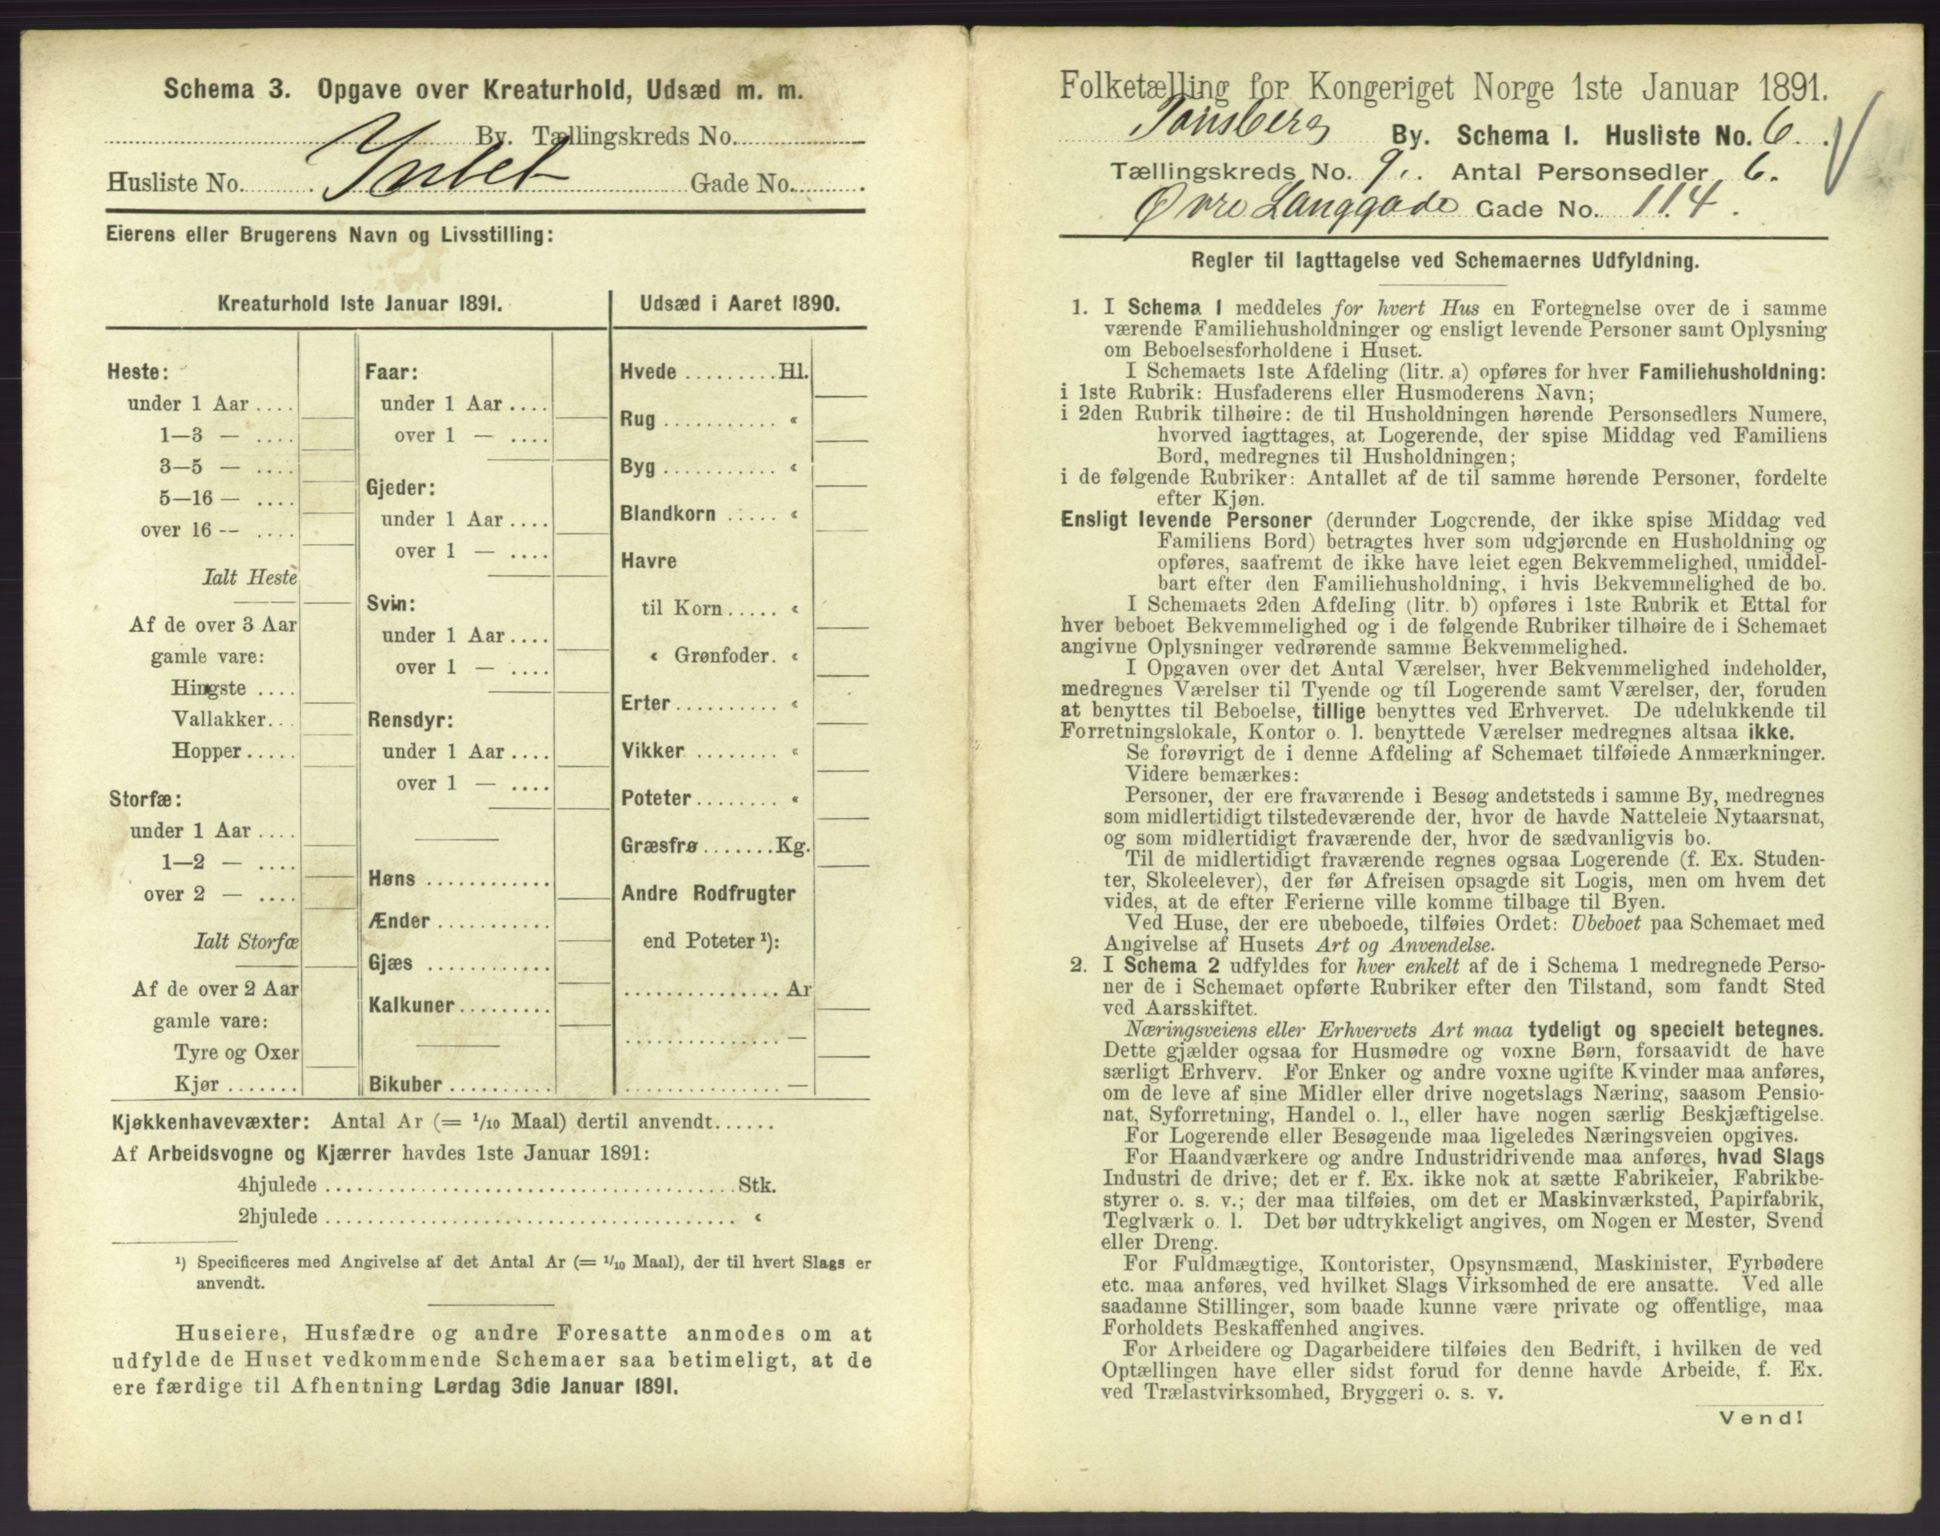 Schema 3. Opgave over Kreaturhold, Udsæd m. m.
By. Tællingskreds No.
Husliste No. Intet Gade No.
Eierens eller Brugerens Navn og Livsstilling:
Kreaturhold 1ste Januar 1891.
Heste:
under 1 Aar ....
1—3 — ....
3—5 — ....
5—16 — ....
over 16 — ....
Ialt Heste
Af de over 3 Aar
gamle vare:
Hingste ....
Vallakker...
Hopper .....
Storfæ:
under 1 Aar ....
1—2 — ....
over 2 — ....
Ialt Storfæ
Af de over 2 Aar
gamle vare:
Tyre og Oxer
Kjør .......
Faar:
under 1 Aar ....
over 1 — ....
Gjeder:
under 1 Aar ....
over 1 — ....
Svin:
under 1 Aar ....
over 1 — ....
Rensdyr:
under 1 Aar ....
over 1 — ....
Høns ............
Ænder ...........
Gjæs ............
Kalkuner.........
Bikuber ..........
Udsæd i Aaret 1890.
Hvede .........Hl.
Rug ........... «
Byg ........... «
Blandkorn ..... «
Havre
til Korn ..... «
« Grønfoder. «
Erter.......... «
Vikker ........ «
Poteter........ «
Græsfrø .......Kg.
Andre Rodfrugter
end Poteter ¹):
............... Ar
............... —
............... —
Kjøkkenhavevæxter: Antal Ar (= ¹/₁₀ Maal) dertil anvendt......
Af Arbeidsvogne og Kjærrer havdes 1ste Januar 1891:
4hjulede .......................................Stk.
2hjulede ....................................... «
¹) Specificeres med Angivelse af det Antal Ar (= ¹/₁₀ Maal), der til hvert Slags er
anvendt.
Huseiere, Husfædre og andre Foresatte anmodes om at
udfylde de Huset vedkommende Schemaer saa betimeligt, at de
ere færdige til Afhentning Lørdag 3die Januar 1891.
Folketælling for Kongeriget Norge 1ste Januar 1891.
Tønsberg By. Schema I. Husliste No. 6.
Tællingskreds No. 9. Antal Personsedler 6.
Øvre Langgade Gade No. 114.
Regler til Iagttagelse ved Schemaernes Udfyldning.
1. I Schema 1 meddeles for hvert Hus en Fortegnelse over de i samme
værende Familiehusholdninger og ensligt levende Personer samt Oplysning
om Beboelsesforholdene i Huset.
I Schemaets 1ste Afdeling (litr. a) opføres for hver Familiehusholdning:
i 1ste Rubrik: Husfaderens eller Husmoderens Navn;
i 2den Rubrik tilhøire: de til Husholdningen hørende Personsedlers Numere,
hvorved iagttages, at Logerende, der spise Middag ved Familiens
Bord, medregnes til Husholdningen;
i de følgende Rubriker: Antallet af de til samme hørende Personer, fordelte
efter Kjøn.
Ensligt levende Personer (derunder Logerende, der ikke spise Middag ved
Familiens Bord) betragtes hver som udgjørende en Husholdning og
opføres, saafremt de ikke have leiet egen Bekvemmelighed, umiddel-
bart efter den Familiehusholdning, i hvis Bekvemmelighed de bo.
I Schemaets 2den Afdeling (litr. b) opføres i 1ste Rubrik et Ettal for
hver beboet Bekvemmelighed og i de følgende Rubriker tilhøire de i Schemaet
angivne Oplysninger vedrørende samme Bekvemmelighed.
I Opgaven over det Antal Værelser, hver Bekvemmelighed indeholder,
medregnes Værelser til Tyende og til Logerende samt Værelser, der, foruden
at benyttes til Beboelse, tillige benyttes ved Erhvervet. De udelukkende til
Forretningslokale, Kontor o. l. benyttede Værelser medregnes altsaa ikke.
Se forøvrigt de i denne Afdeling af Schemaet tilføiede Anmærkninger.
Videre bemærkes:
Personer, der ere fraværende i Besøg andetsteds i samme By, medregnes
som midlertidigt tilstedeværende der, hvor de havde Natteleie Nytaarsnat,
og som midlertidigt fraværende der, hvor de sædvanligvis bo.
Til de midlertidigt fraværende regnes ogsaa Logerende (f. Ex. Studen-
ter, Skoleelever), der før Afreisen opsagde sit Logis, men om hvem det
vides, at de efter Ferierne ville komme tilbage til Byen.
Ved Huse, der ere ubeboede, tilføies Ordet: Ubeboet paa Schemaet med
Angivelse af Husets Art og Anvendelse.
2. I Schema 2 udfyldes for hver enkelt af de i Schema 1 medregnede Perso-
ner de i Schemaet opførte Rubriker efter den Tilstand, som fandt Sted
ved Aarsskiftet.
Næringsveiens eller Erhvervets Art maa tydeligt og specielt betegnes.
Dette gjælder ogsaa for Husmødre og voxne Børn, forsaavidt de have
særligt Erhverv. For Enker og andre voxne ugifte Kvinder maa anføres,
om de leve af sine Midler eller drive nogetslags Næring, saasom Pensio-
nat, Syforretning, Handel o. l., eller have nogen særlig Beskjæftigelse.
For Logerende eller Besøgende maa ligeledes Næringsveien opgives.
For Haandværkere og andre Industridrivende maa anføres, hvad Slags
Industri de drive; det er f. Ex. ikke nok at sætte Fabrikeier, Fabrikbe-
styrer o. s. v.; der maa tilføies, om det er Maskinværksted, Papirfabrik,
Teglværk o. l. Det bør udtrykkeligt angives, om Nogen er Mester, Svend
eller Dreng.
For Fuldmægtige, Kontorister, Opsynsmænd, Maskinister, Fyrbødere
etc. maa anføres, ved hvilket Slags Virksomhed de ere ansatte. Ved alle
saadanne Stillinger, som baade kunne være private og offentlige, maa
Forholdets Beskaffenhed angives.
For Arbeidere og Dagarbeidere tilføies den Bedrift, i hvilken de ved
Optællingen have eller sidst forud for denne havde Arbeide, f. Ex.
ved Trælastvirksomhed, Bryggeri o. s. v.
Vend!